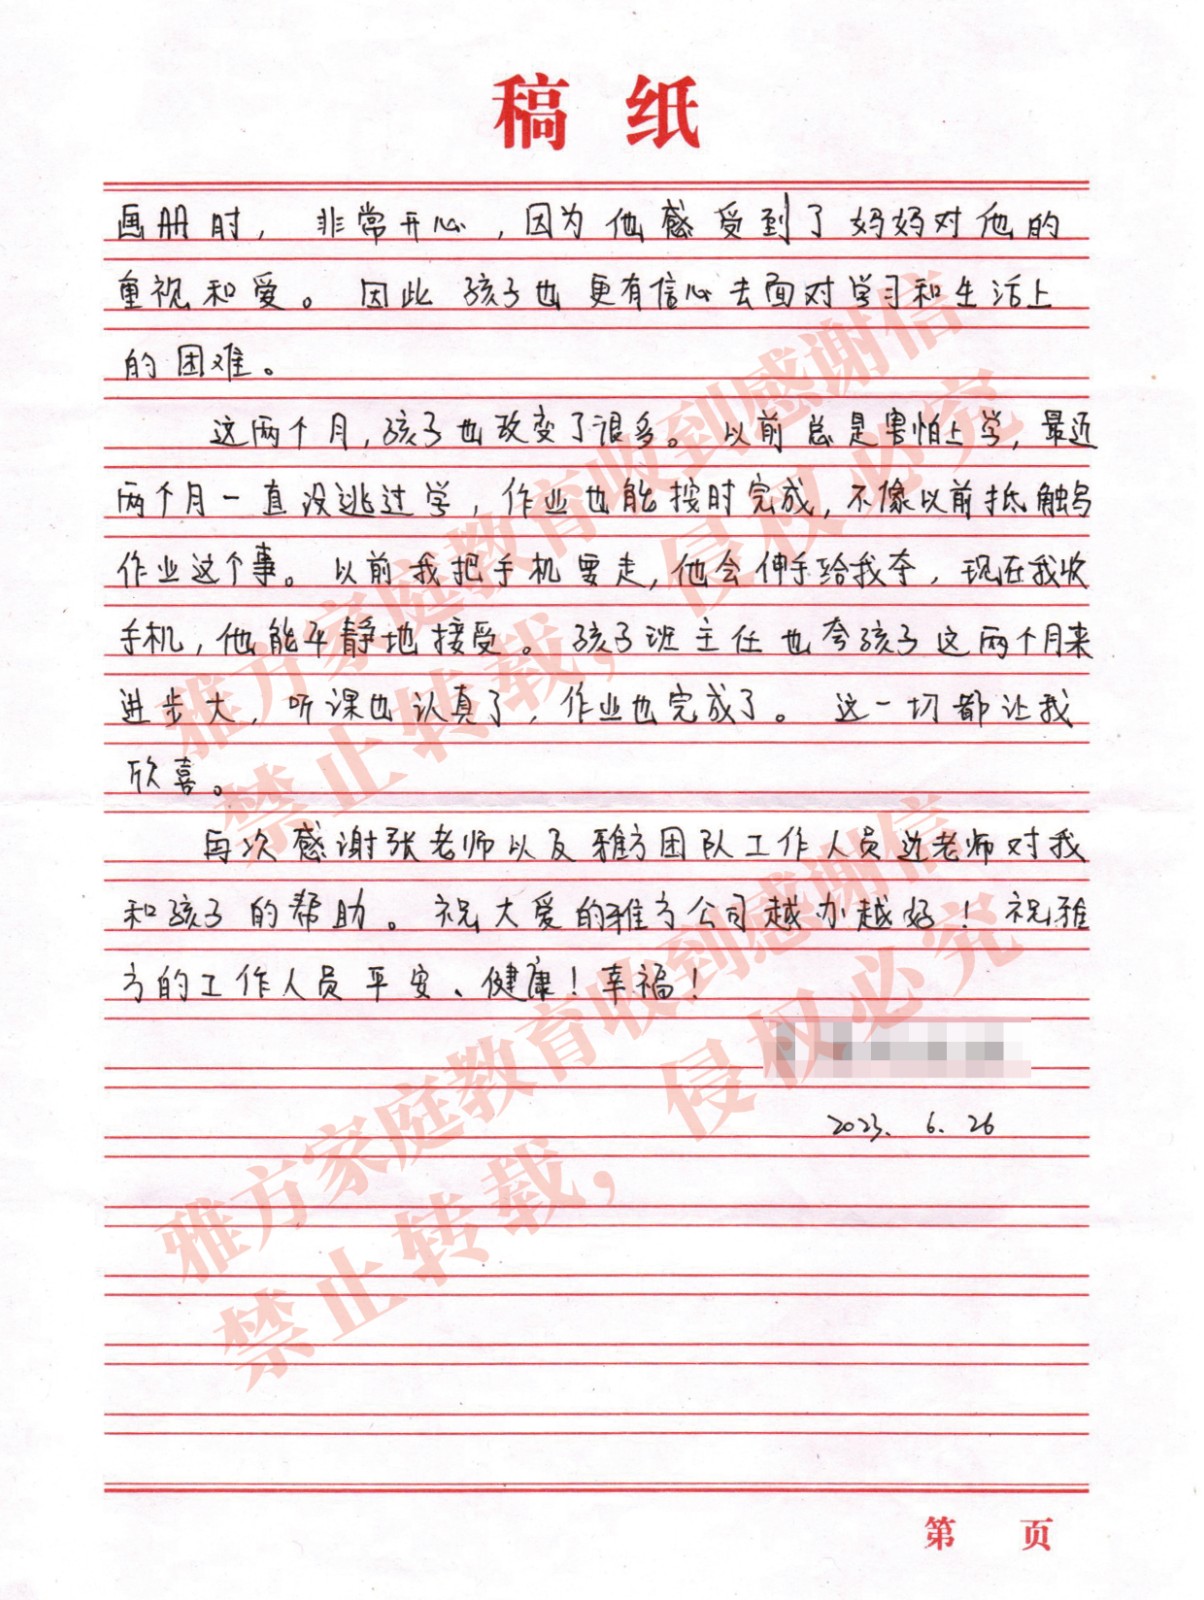 稿 纸
画册时，非常开心，因为他感受到了妈妈对他的
重视和爱。因此孩子也更有信心去面对学习和生活上
的困难。
这两个月，孩子也改变了很多。以前总是害怕上学，最近
两个月一直没逃过学，作业也能按时完成，不像以前抵触写
作业这个事。以前我把手机要走，他会伸手给我夺，现在我收
手机，他能平静地接受。孩子班主任也夸孩子这两个月来
进步大，听课也认真了，作业也完成了。这一切都让我
欣喜。
再次感谢张老师以及雅方团队工作人员边老师对我
和孩子的帮助。祝大爱的雅方公司越办越好！祝雅
方的工作人员平安、健康！幸福！
2023.6.26
雅方家庭教育收到感谢信
禁止转载，侵权必究
雅方家庭教育收到感谢信
禁止转载，侵权必究
第 页